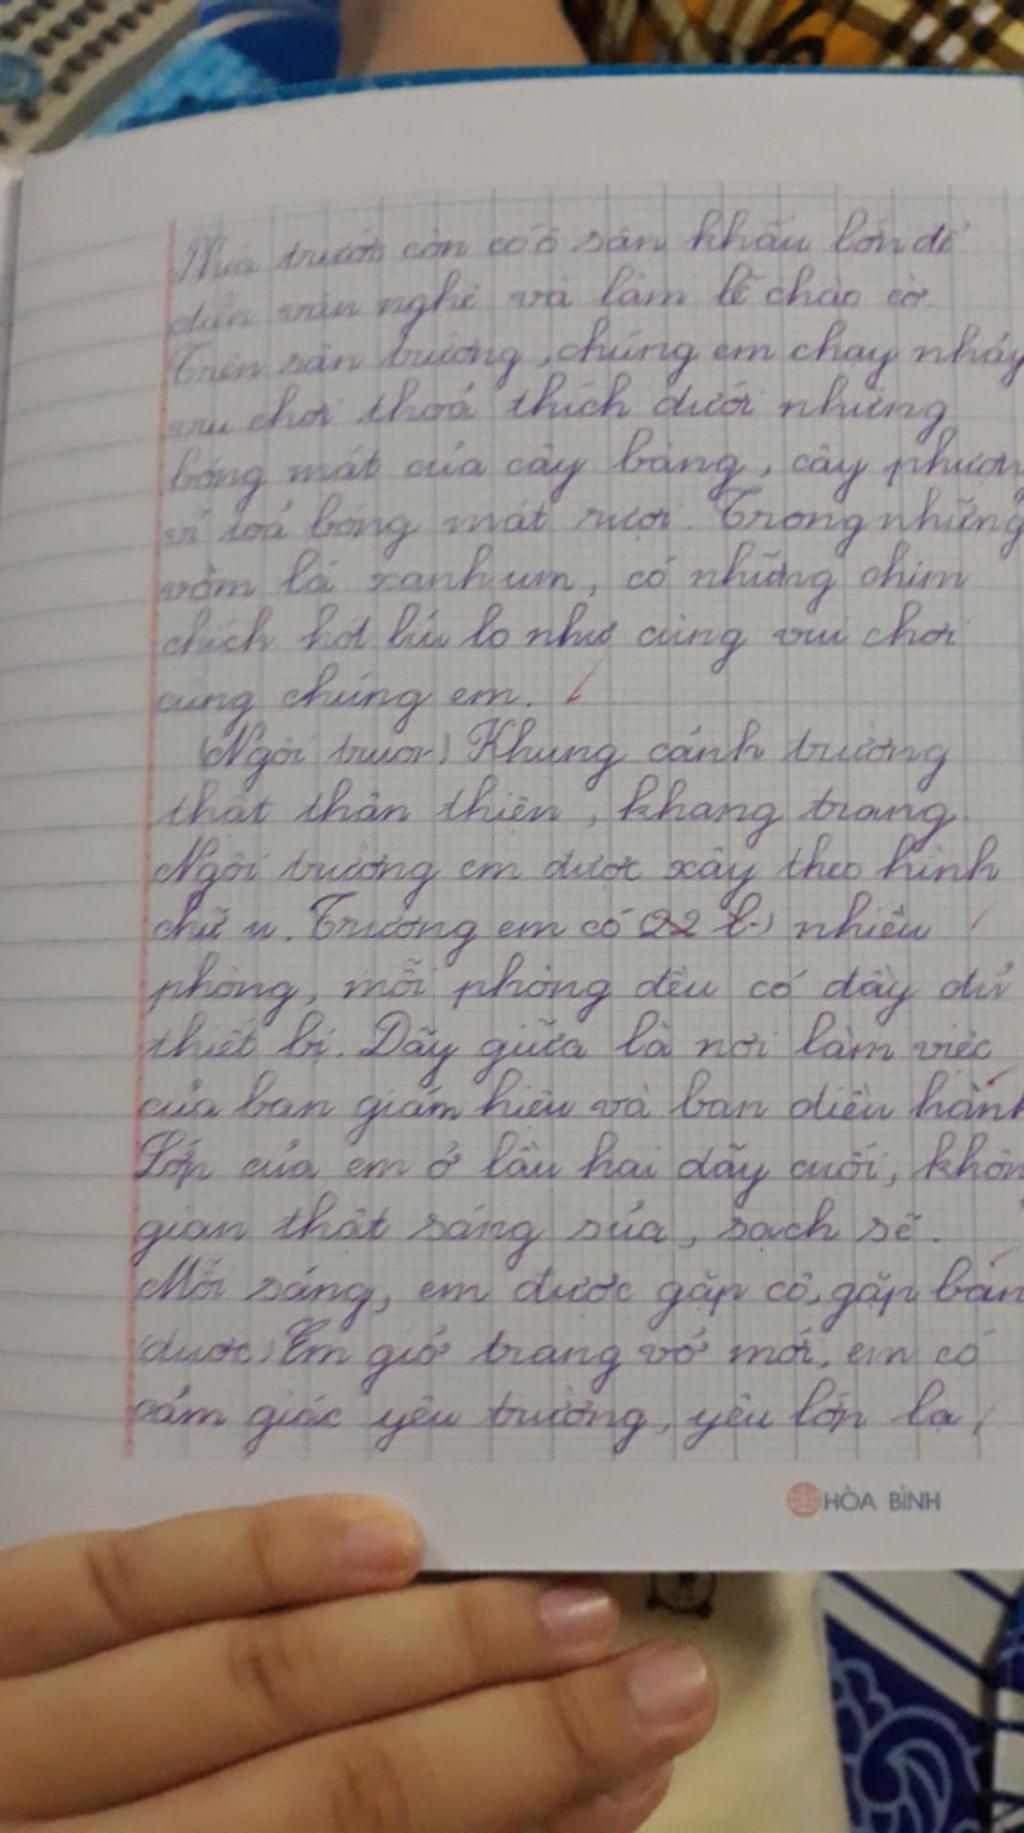 Phía trước còn có ô sân khấu lớn để
diễn văn nghệ và làm lễ chào cờ.
Trên sân trường, chúng em chạy nhảy
vui chơi thoả thích dưới những
bóng mát của cây bàng, cây phượn
vĩ toả bóng mát rượi. Trong những
vòm lá xanh um, có những chim
chích hót líu lo như cùng vui chơi
cùng chúng em.
(Ngôi trườn) Khung cảnh trường
thật thân thiện, khang trang.
Ngôi trường em được xây theo hình
chữ u. Trường em có (22 l.) nhiều
phòng, mỗi phòng đều có đầy đủ
thiết bị. Dãy giữa là nơi làm việc
của ban giám hiệu và ban điều hành
Lớp của em ở lầu hai dãy cuối, khôn
gian thật sáng sủa, sạch sẽ.
Mỗi sáng, em được gặp cô, gặp bạn
(được) Em giở trang vở mới, em có
cảm giác yêu trường, yêu lớp lạ
HÒA BÌNH